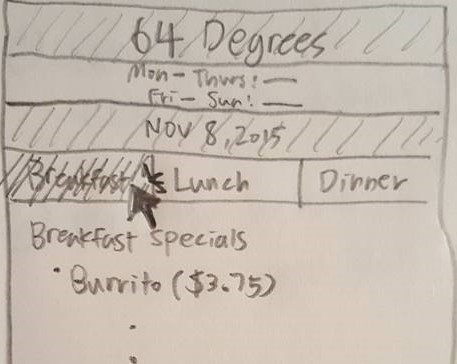 64 Degrees
Mon - Thurs: —
Fri - Sun: —
NOV 8, 2015
Breakfast Lunch Dinner
Breakfast specials
• Burrito ($3.75)